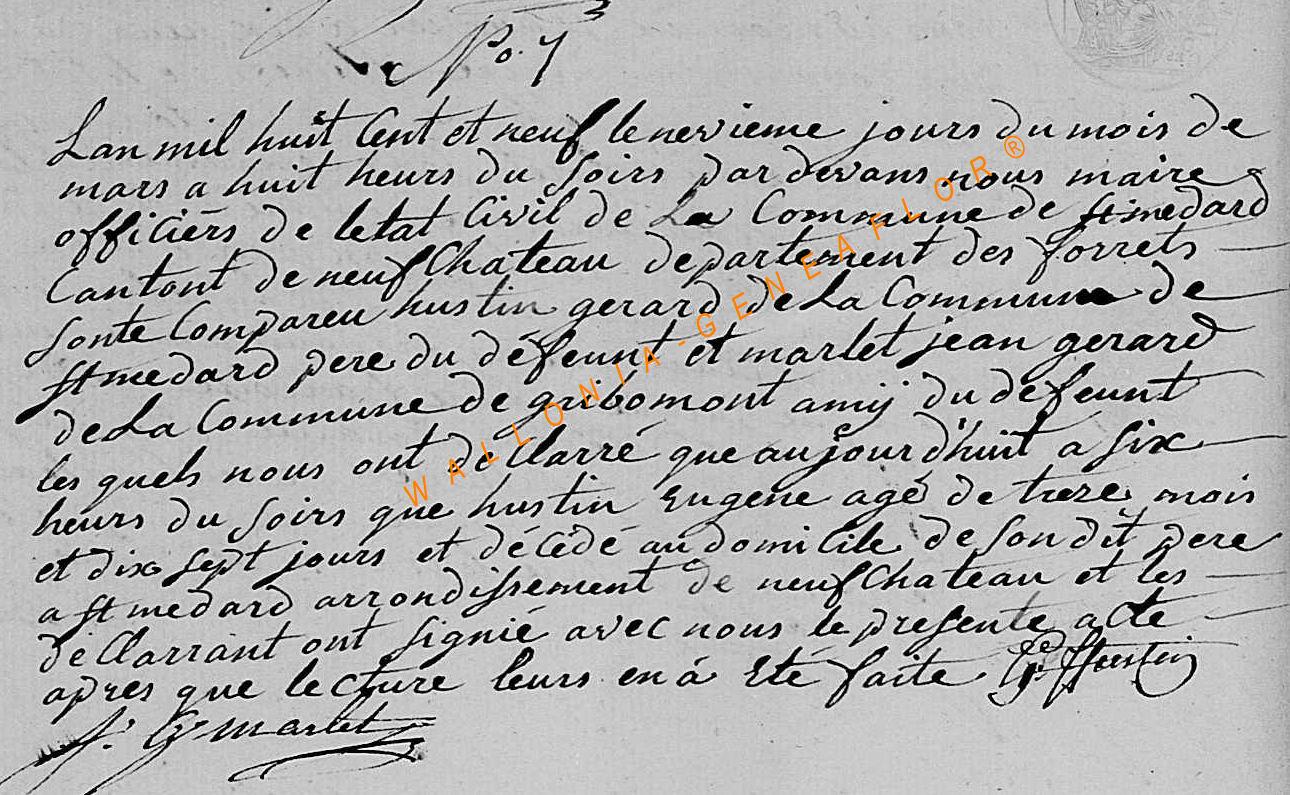 No. 7
Lan mil huit Cent et neuf le nevieme jours du mois de
mars a huit heurs du soirs par devans nous maire
officiérs de letat Civil de La Commune de st medard
Cantont de neufChateau departement des forrets
sonte Compareu hustin gerard de La Commune de
st medard pere du défeunt et marlet jean gerard
de La Commune de gribomont amij du défeunt
les quels nous ont de Clarré que aujourd'huit a six
heurs du soirs que hustin Eugene agé de treze mois
et dix sept jours et décédé au domicile de son dit pere
a st medard arrondissement de neufChateau et les
déClarrant ont signié avec nous le presente acte
apres que lecture leurs en á Eté faite Gd hustin
j. G. marlet
WALLONIA-GENEAFLOR®